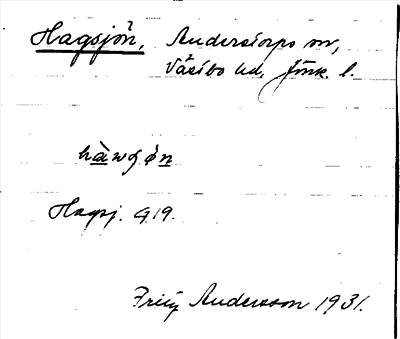 Hagsjön, Anderstorps sn,
Västbo hd, Jönk. l.
hàwʃön
Hagsj. G 19.
Fritz Andersson 1931.